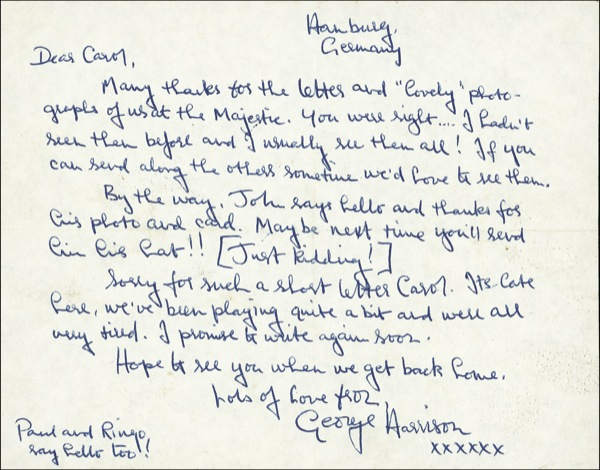 Hamburg,
Germany
Dear Carol,
Many thanks for the letter and "lovely" photo-
graphs of us at the Majestic. You were right.... I hadn't
seen them before and I usually see them all! If you
can send along the others sometime we'd love to see them.
By the way, John says hello and thanks for
his photo and card. Maybe next time you'll send
him his hat!! [Just kidding!]
Sorry for such a short letter Carol. Its late
here, we've been playing quite a bit and we're all
very tired. I promise to write again soon.
Hope to see you when we get back home.
Lots of love from
George Harrison
xxxxxx
Paul and Ringo,
say hello too!